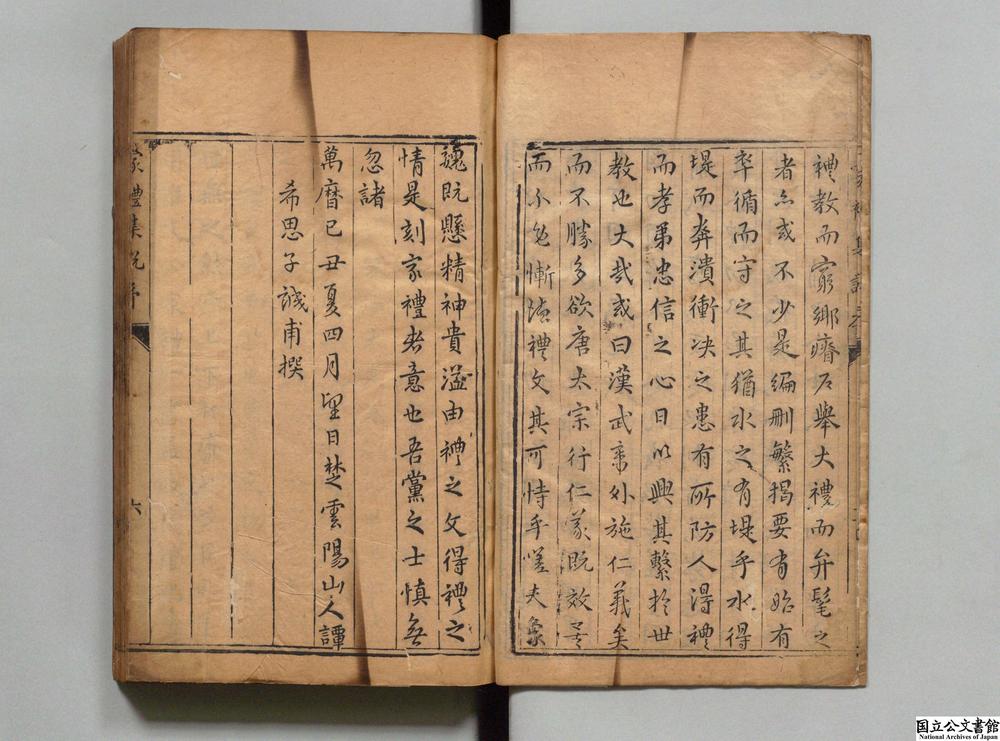 禮教而窮鄉瘠石舉大禮而弁髦之
者亦或不少是編刪繁揭要有始有
率循而守之其猶水之有堤乎水得
堤而奔潰衝决之患有所防人得禮
而孝弟忠信之心日以興其繫於世
教也大哉或曰漢武帝外施仁義矣
而不勝多欲唐太宗行仁義既效矣
而不免慚德禮文其可恃乎嗟夫象
魏既懸精神貴溢由禮之文得禮之
情是刻家禮者意也吾黨之士慎無
忽諸
萬曆己丑夏四月望日楚雲陽山人譚
希思子誠甫撰
家禮集說序
六
国立公文書館
National Archives of Japan